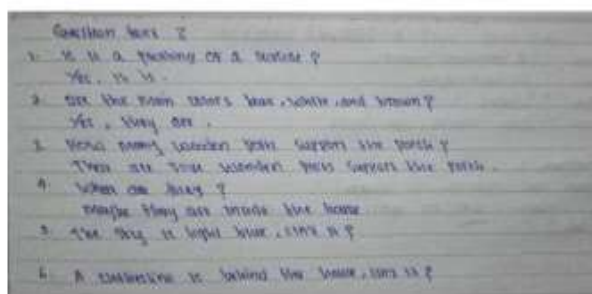 Question here 2
1. Is it a painting of a house?
Yes, it is.
2. Are the main colors blue, white, and brown?
Yes, they are.
3. How many wooden posts support the porch?
There are four wooden posts support the porch.
4. Where are they?
maybe they are inside the house
5. The sky is light blue, isn't it?
6. A clothesline is behind the house, isn't it?